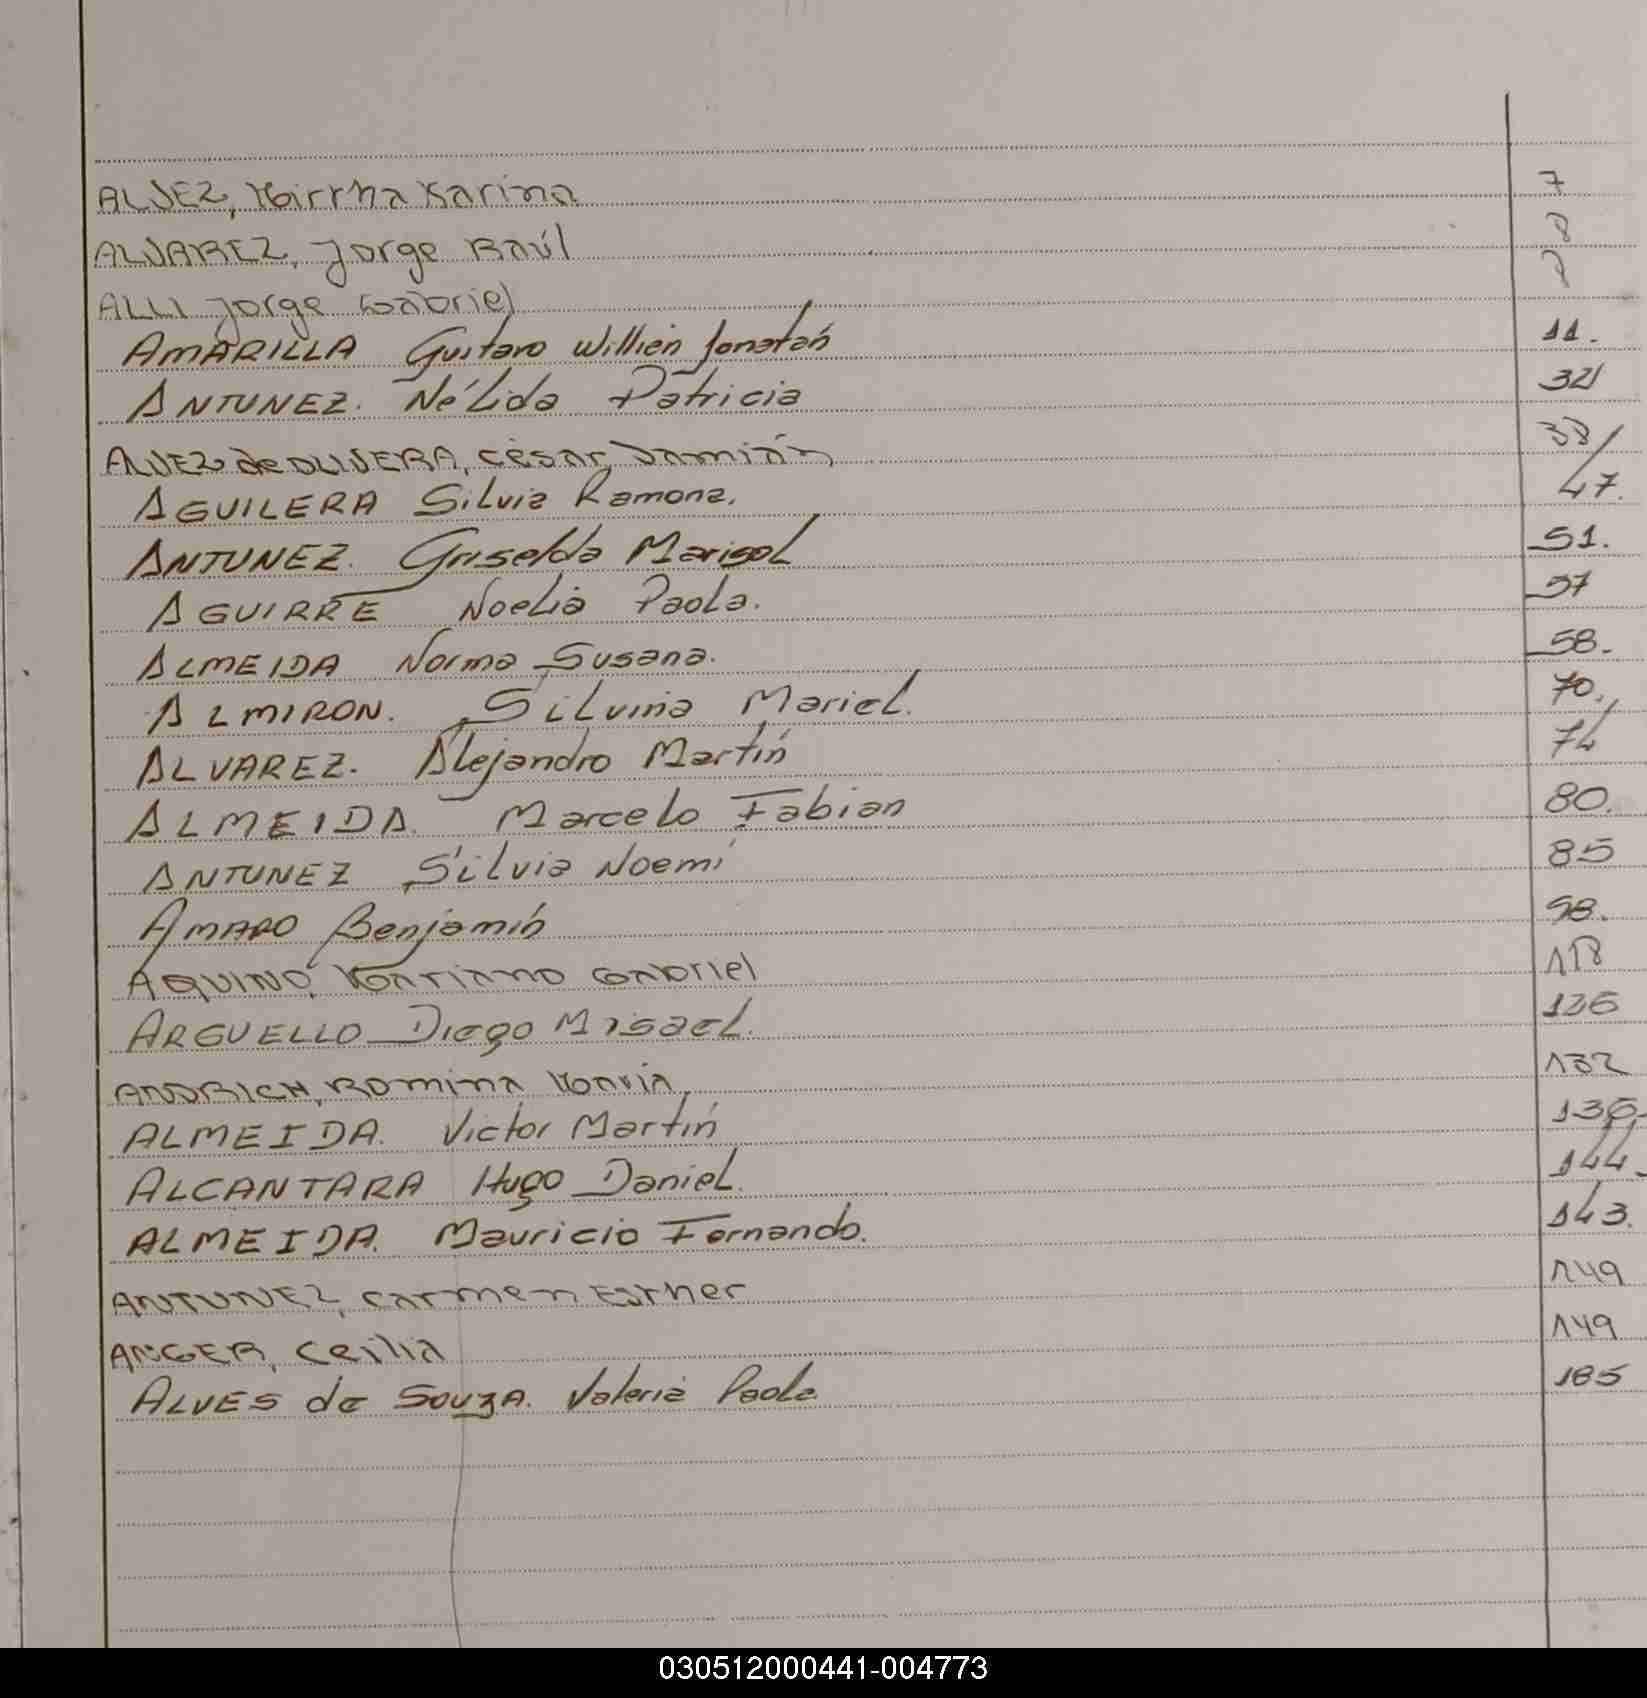 ALVEZ, Mirtha Karina 7
ALVAREZ, Jorge Raúl 8
ALLI Jorge Gabriel 8
AMARILLA Gustavo Willien Jonatán 11.
ANTUNEZ. Nélida Patricia 32
ALVEZ de OLIVERA, César Damián 38
AGUILERA Silvia Ramona. 47.
ANTUNEZ. Griselda Marisol 51.
AGUIRRE Noelia Paola. 57
ALMEIDA Norma Susana. 58.
ALMIRON. Silvina Mariel. 70.
ALVAREZ. Alejandro Martín 74
ALMEIDA. Marcelo Fabian 80.
ANTUNEZ Silvia Noemi 85
AMARO Benjamín 98.
AQUINO, Mariano Gabriel 118
ARGUELLO Diego Misael. 126
ANDRICH, Romina María 132
ALMEIDA. Victor Martín 136.
ALCANTARA Hugo Daniel. 144.
ALMEIDA. Mauricio Fernando. 143.
ANTUNEZ, Carmen Esther 149
ANGER, Ceilia 149
ALVES de SOUZA. Valeria Paola 185
030512000441-004773